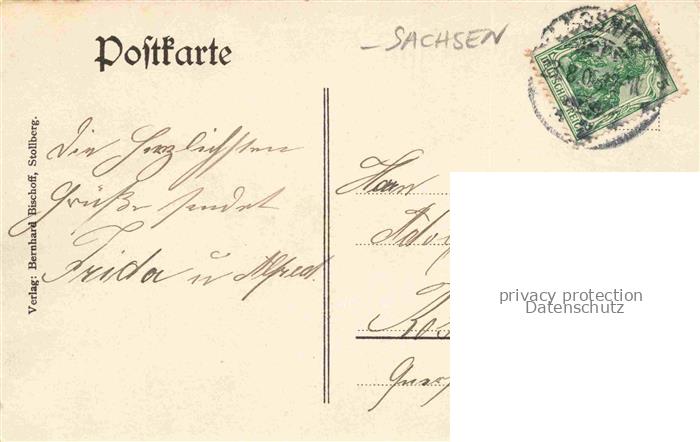 Postkarte
– SACHSEN
DEUTSCHES REICH
Verlag: Bernhard Bischoff, Stollberg.
Die herzlichsten
Grüße sendet
Frida u Alfred.
Herrn
privacy protection
Datenschutz